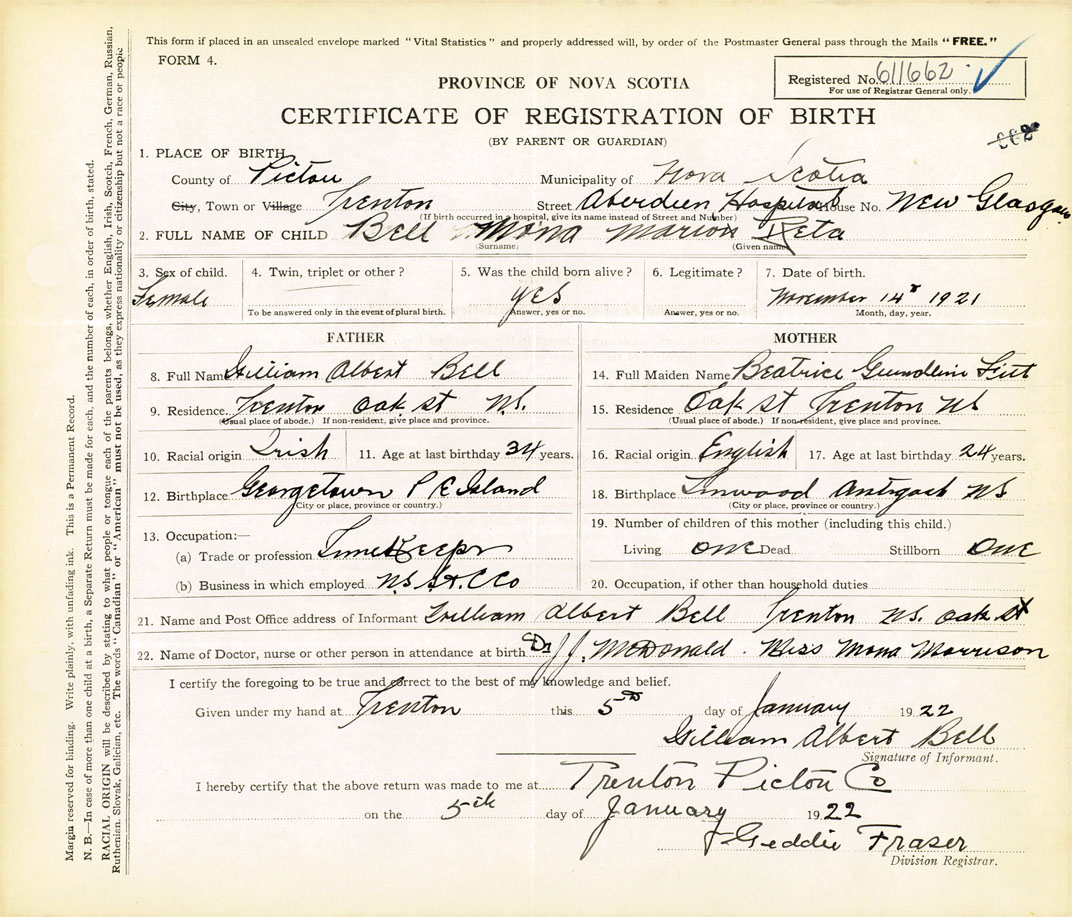 This form if placed in an unsealed envelope marked "Vital Statistics" and properly addressed will, by order of the Postmaster General pass through the Mails "FREE."
FORM 4.
Registered No. 611662
For use of Registrar General only.
PROVINCE OF NOVA SCOTIA
CERTIFICATE OF REGISTRATION OF BIRTH
(BY PARENT OR GUARDIAN)
1. PLACE OF BIRTH
County of Pictou Municipality of Nova Scotia
City, Town or Village Trenton Street Aberdeen Hospital House No. New Glasgow
(If birth occurred in a hospital, give its name instead of Street and Number)
2. FULL NAME OF CHILD Bell Mona Marion Reta
(Surname) (Given name)
3. Sex of child. 4. Twin, triplet or other? 5. Was the child born alive? 6. Legitimate? 7. Date of birth.
Female yes November 14 1921
To be answered only in the event of plural birth. Answer, yes or no. Answer, yes or no. Month, day, year.
FATHER
8. Full Name William Albert Bell
9. Residence Trenton Oak St NS.
(Usual place of abode.) If non-resident, give place and province.
10. Racial origin Irish 11. Age at last birthday 34 years.
12. Birthplace Georgetown P E Island
(City or place, province or country.)
13. Occupation:—
(a) Trade or profession TimeKeeper
(b) Business in which employed N.S. St. C Co
MOTHER
14. Full Maiden Name Beatrice
15. Residence Oak St Trenton NS
(Usual place of abode.) If non-resident, give place and province.
16. Racial origin English 17. Age at last birthday 24 years.
18. Birthplace Linwood NS
(City or place, province or country.)
19. Number of children of this mother (including this child.)
Living one Dead Stillborn one
20. Occupation, if other than household duties
21. Name and Post Office address of Informant William Albert Bell Trenton NS. Oak St
22. Name of Doctor, nurse or other person in attendance at birth. Dr J.J. McDonald. Miss Mona Morrison
I certify the foregoing to be true and correct to the best of my knowledge and belief.
Given under my hand at Trenton this 5th day of January 1922
William Albert Bell
Signature of Informant.
I hereby certify that the above return was made to me at Trenton Pictou Co
on the 5th day of January 1922
Geddie Fraser
Division Registrar.
Margin reserved for binding. Write plainly, with unfading ink. This is a Permanent Record.
N. B.—In case of more than one child at a birth, a Separate Return must be made for each, and the number of each, in order of birth, stated.
RACIAL ORIGIN will be described by stating to what people or tongue each of the parents belongs, whether English, Irish, Scotch, French, German, Russian,
Ruthenian, Slovak, Galician, etc. The words "Canadian" or "American" must not be used, as they express nationality or citizenship but not a race or people